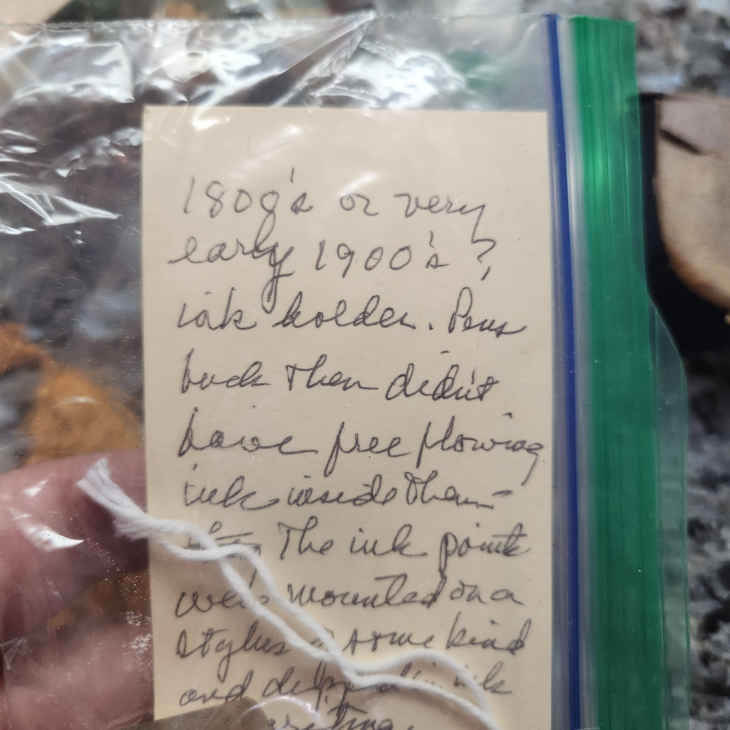 1808's or very
early 1900's?
ink holder. Pens
back then didn't
have free flowing
ink inside them-
The ink points
were mounted on a
stylus of some kind
and dipped in ink
writing.